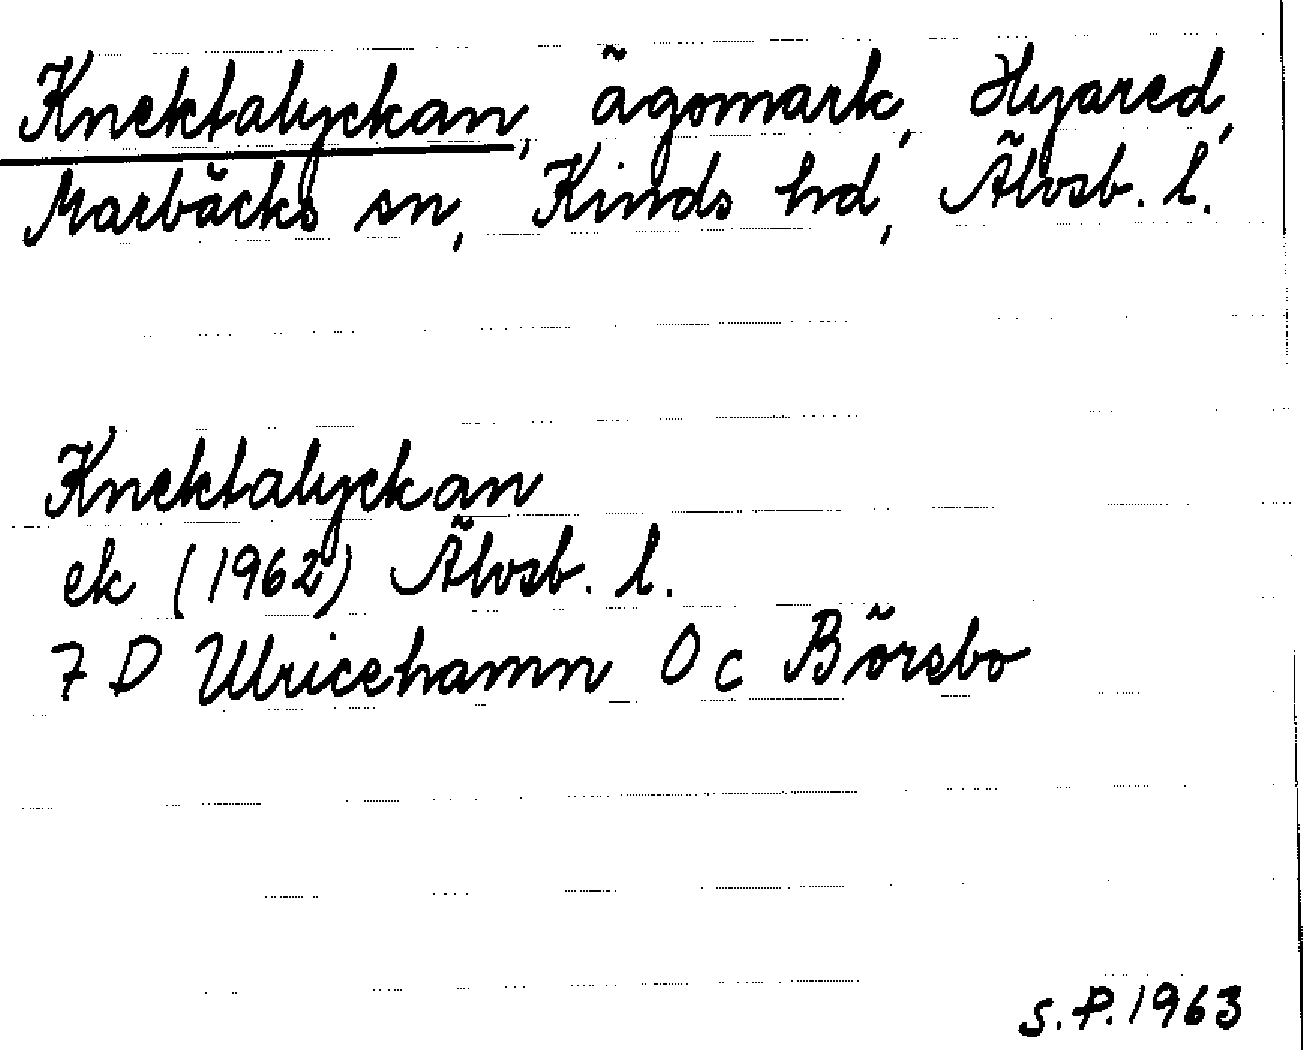 Knektalyckan, ägomark, Hyared,
Marbäcks sn, Kinds hd, Älvsb. l.
Knektalyckan
ek (1962) Älvsb. l.
7 D Ulricehamn 0 c Börebo
S.P. 1963